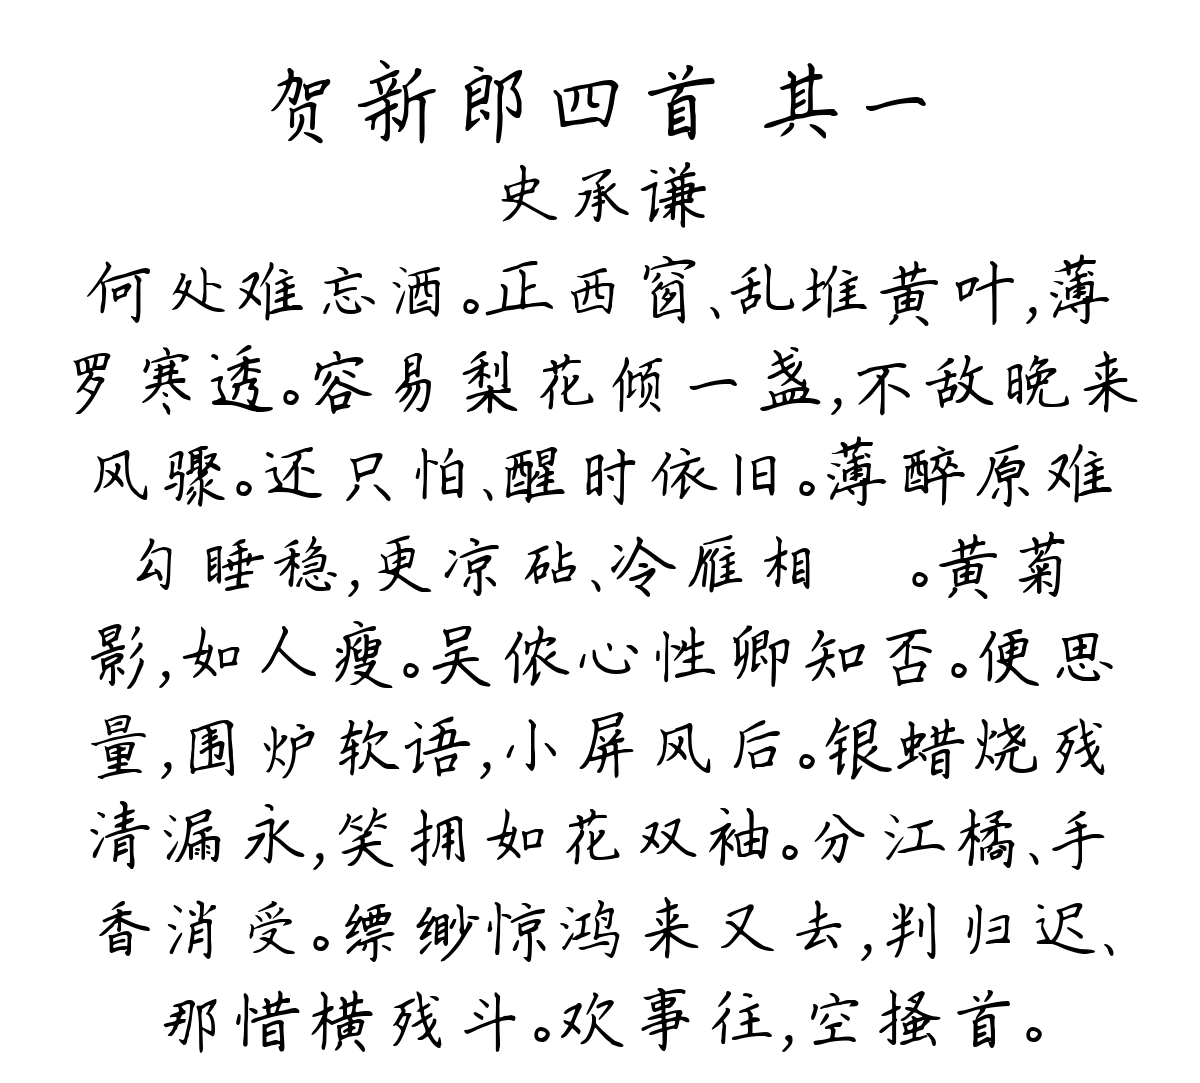 贺新郎四首 其一
史承谦
何处难忘酒。正西窗、乱堆黄叶,薄
罗寒透。容易梨花倾一盏,不敌晚来
风骤。还只怕、醒时依旧。薄醉原难
勾睡稳,更凉砧、冷雁相 。黄菊
影,如人瘦。吴侬心性卿知否。便思
量,围炉软语,小屏风后。银蜡烧残
清漏永,笑拥如花双袖。分江橘、手
香消受。缥缈惊鸿来又去,判归迟、
那惜横残斗。欢事往,空搔首。